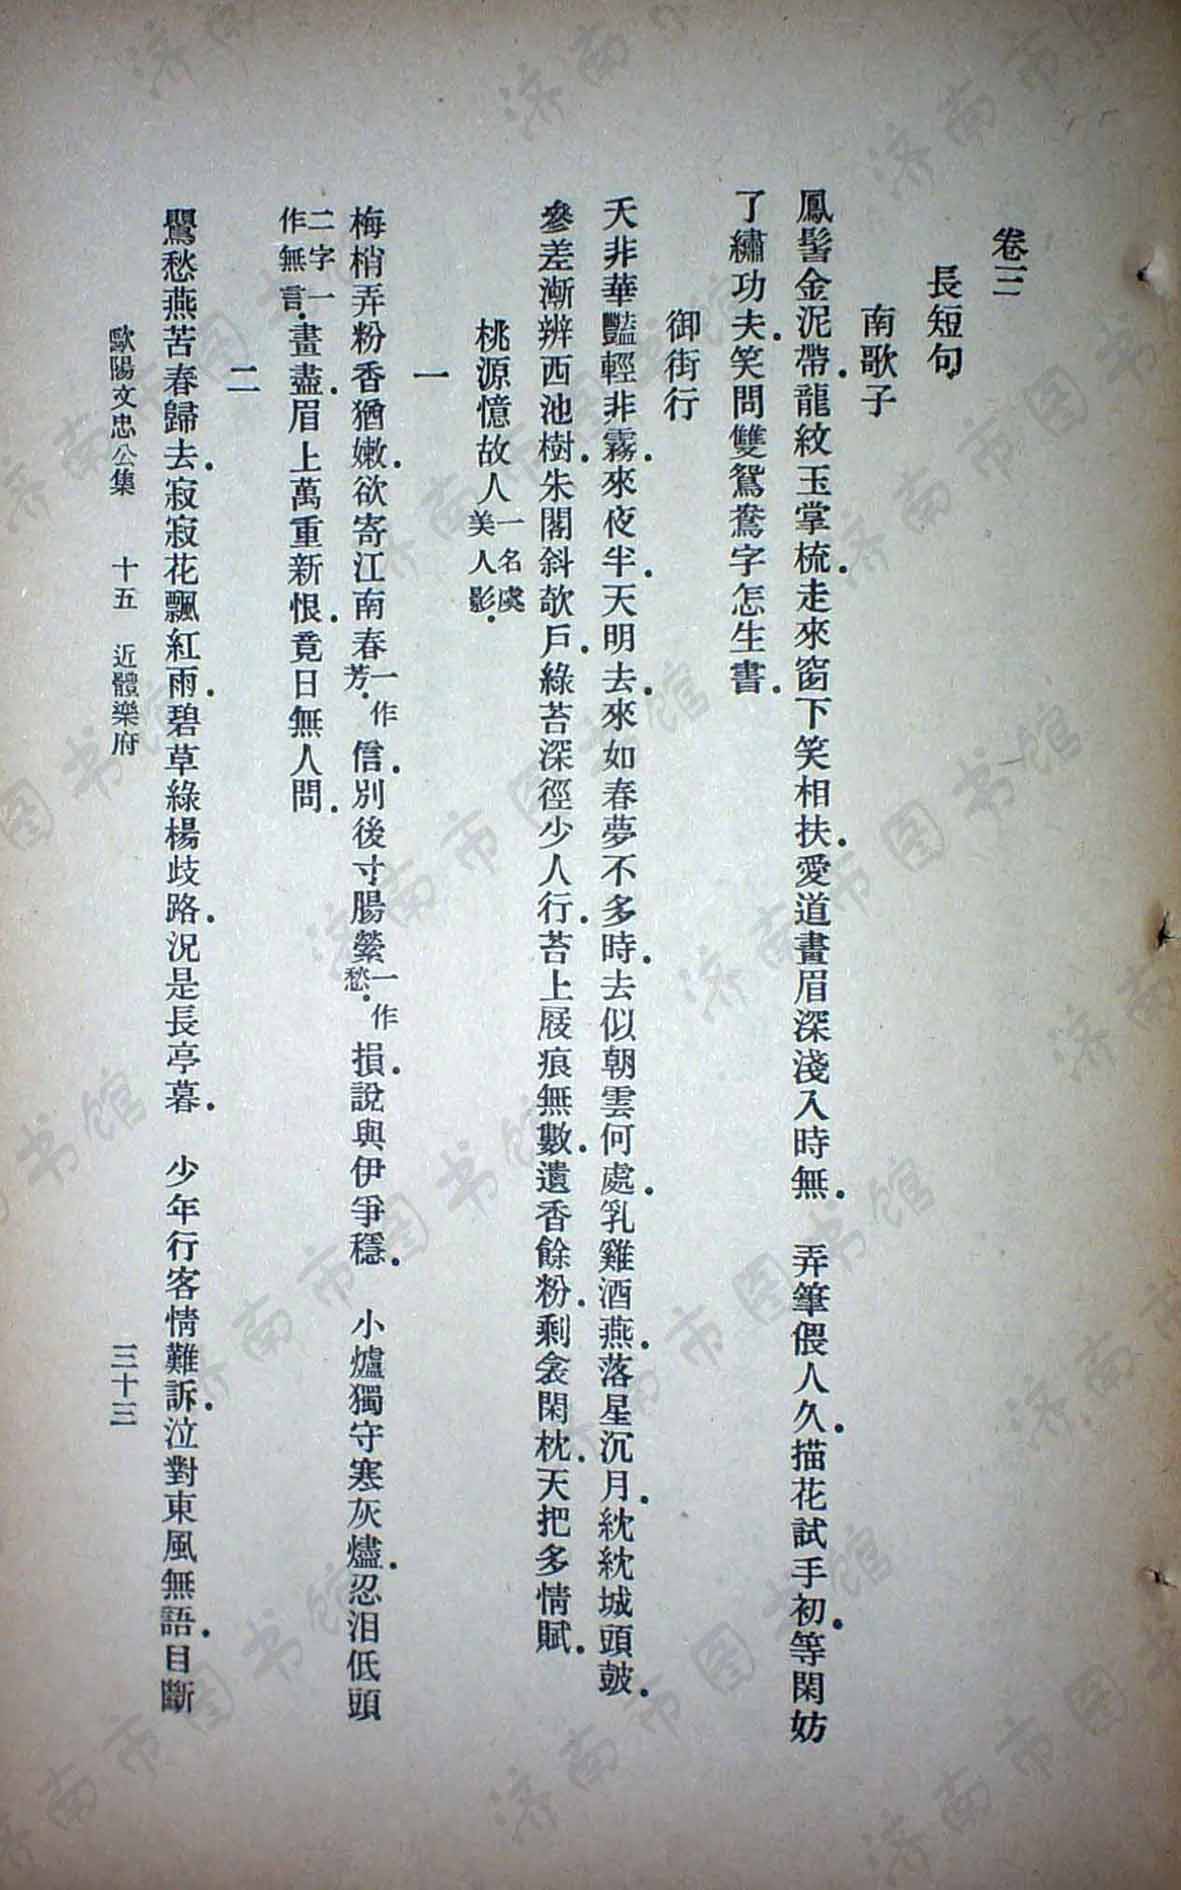 卷三
長短句
南歌子
鳳髻金泥帶．龍紋玉掌梳．走來窗下笑相扶．愛道畫眉深淺入時無．　弄筆偎人久．描花試手初．等閑妨
了繡功夫．笑問雙鴛鴦字怎生書．
御街行
夭非華豔輕非霧．來夜半．天明去．來如春夢不多時．去似朝雲何處．乳雞酒燕．落星沉月．紞紞城頭鼓．
參差漸辨西池樹．朱閣斜欹戶．綠苔深徑少人行．苔上屐痕無數．遺香餘粉．剩衾閑枕．天把多情賦．
桃源憶故人一名虞美人影．
一
梅梢弄粉香猶嫩．欲寄江南春一作芳．信．別後寸腸縈一作愁．損．說與伊爭穩．　小爐獨守寒灰燼．忍泪低頭
二字一作無言．畫盡．眉上萬重新恨．竟日無人問．
二
鸎愁燕苦春歸去．寂寂花飄紅雨．碧草綠楊歧路．況是長亭暮．　少年行客情難訴．泣對東風無語．目斷
歐陽文忠公集　十五　近體樂府　三十三
济南市图书馆